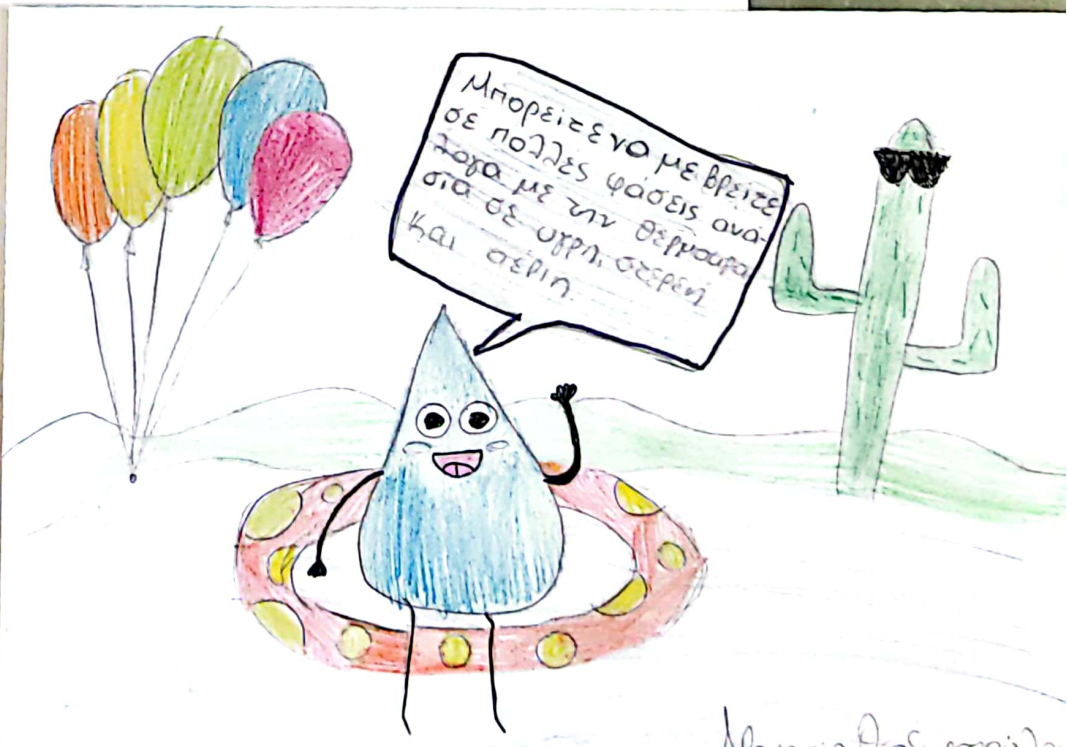 Μπορείτε να με βρείτε
σε πολλές φάσεις ανά-
λογα με την θερμοκρα
σια σε υγρή, στερεή
και αέρια.